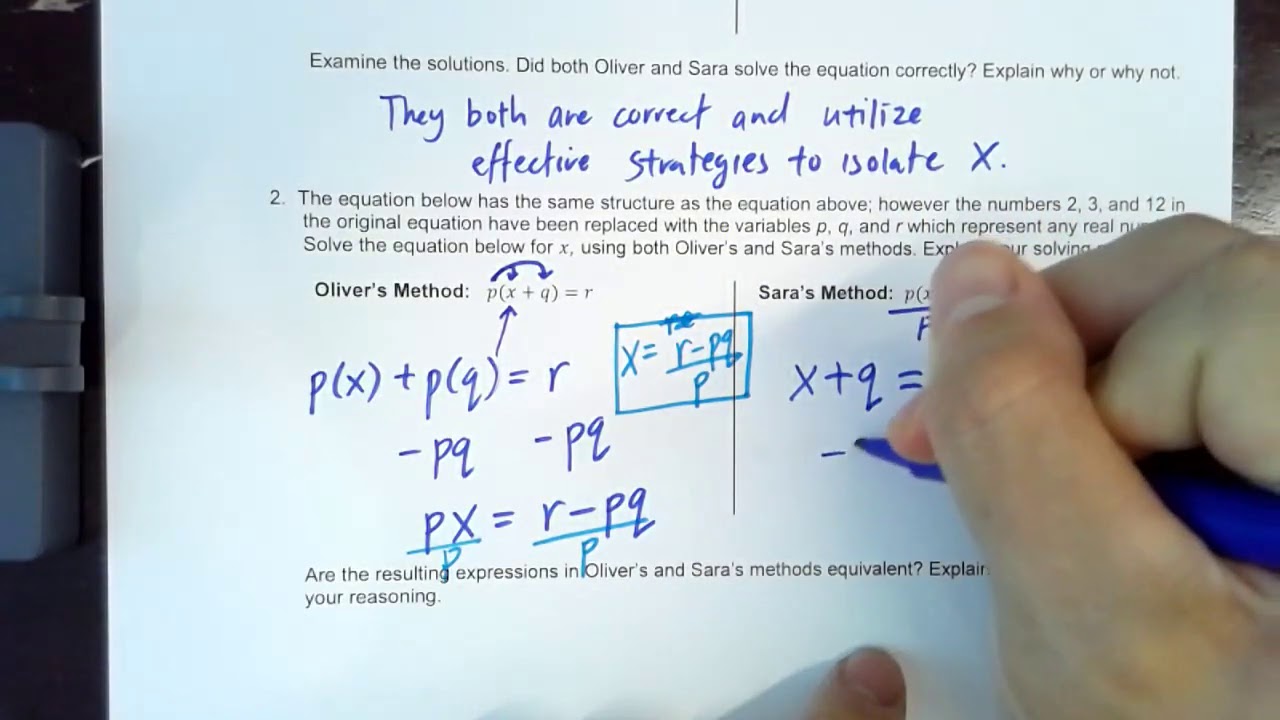 Examine the solutions. Did both Oliver and Sara solve the equation correctly? Explain why or why not.
They both are correct and utilize
effective strategies to isolate X.
2. The equation below has the same structure as the equation above; however the numbers 2, 3, and 12 in
the original equation have been replaced with the variables p, q, and r which represent any real
Solve the equation below for x, using both Oliver's and Sara's methods. solving
Oliver's Method: p(x + q) = r
p(x) + p(q) = r
-pq -pq
px = r-pq
p p
x = r-pq
p
Sara's Method: p(x
x+q =
-
Are the resulting expressions in Oliver's and Sara's methods equivalent? Explain
your reasoning.